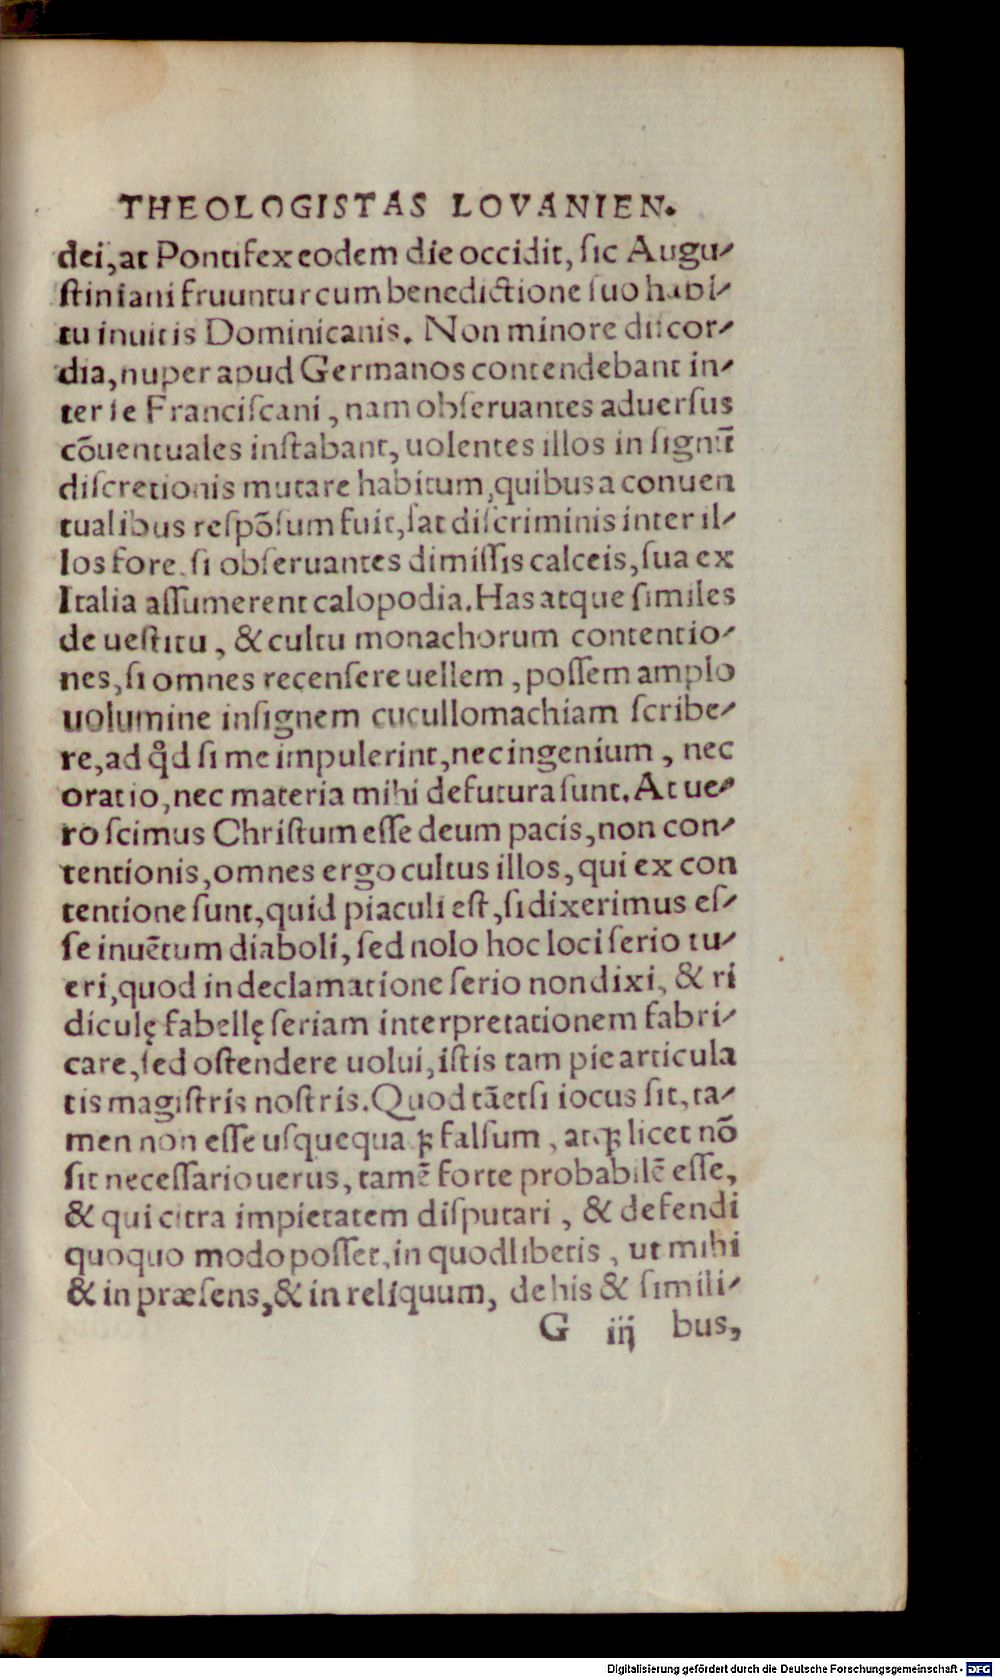 THEOLOGISTAS LOVANIEN.
dei, at Pontifex eodem die occidit, sic Augu-
ſtiniani fruuntur cum benedictione ſuo habi-
tu inuitis Dominicanis. Non minore diſcor-
dia, nuper apud Germanos contendebant in-
ter ſe Franciſcani, nam obſeruantes aduerſus
cōuentuales inſtabant, uolentes illos in signū
diſcretionis mutare habitum, quibus a conuen
tualibus reſpōſum fuit, ſat diſcriminis inter il-
los fore. ſi obſeruantes dimiſſis calceis, ſua ex
Italia aſſumerent calopodia. Has atque ſimiles
de ueſtitu, & cultu monachorum contentio-
nes, ſi omnes recenſere uellem, poſſem amplo
uolumine inſignem cucullomachiam ſcribe-
re, ad qd̊ ſi me impulerint, nec ingenium, nec
oratio, nec materia mihi defutura ſunt. At ue-
ro ſcimus Chriſtum eſſe deum pacis, non con-
tentionis, omnes ergo cultus illos, qui ex con
tentione ſunt, quid piaculi eſt, ſi dixerimus eſ-
ſe inuētum diaboli, ſed nolo hoc loci ſerio tu-
eri, quod in declamatione ſerio non dixi, & ri
diculę fabellę ſeriam interpretationem fabri-
care, ſed oſtendere uolui, iſtis tam pie articula
tis magiſtris noſtris. Quod tāetſi iocus ſit, ta-
men non eſſe uſquequaꝗ falſum, atꝗ licet nō
ſit neceſſario uerus, tamē forte probabilē eſſe,
& qui citra impietatem diſputari, & defendi
quoquo modo poſſet, in quodlibetis, ut mihi
& in præſens, & in reliquum, de his & ſimili-
G iij bus,
Digitalisierung gefördert durch die Deutsche Forschungsgemeinschaft - DFG